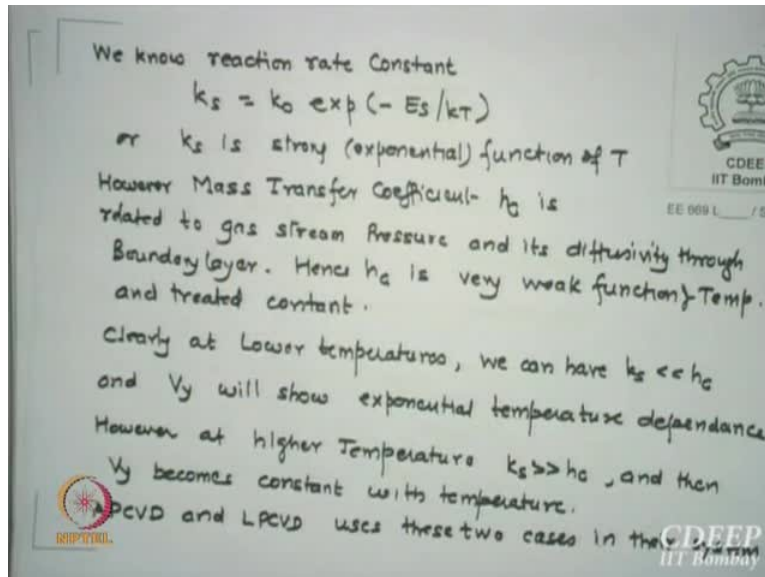 We know reaction rate Constant
ks = ko exp(- Es/kT)
or ks is strong (exponential) function of T
However Mass Transfer Coefficient hG is
related to gas stream Pressure and its diffusivity through
Boundary layer. Hence hG is very weak function of Temp.
and treated constant.
Clearly at Lower temperatures, we can have ks << hG
and Vy will show exponential temperature dependance
However at higher Temperature ks >> hG, and then
Vy becomes constant with temperature.
APCVD and LPCVD uses these two cases in their system
CDEE
IIT Bom
EE 669 L /S
NPTEL
CDEEP
IIT Bombay